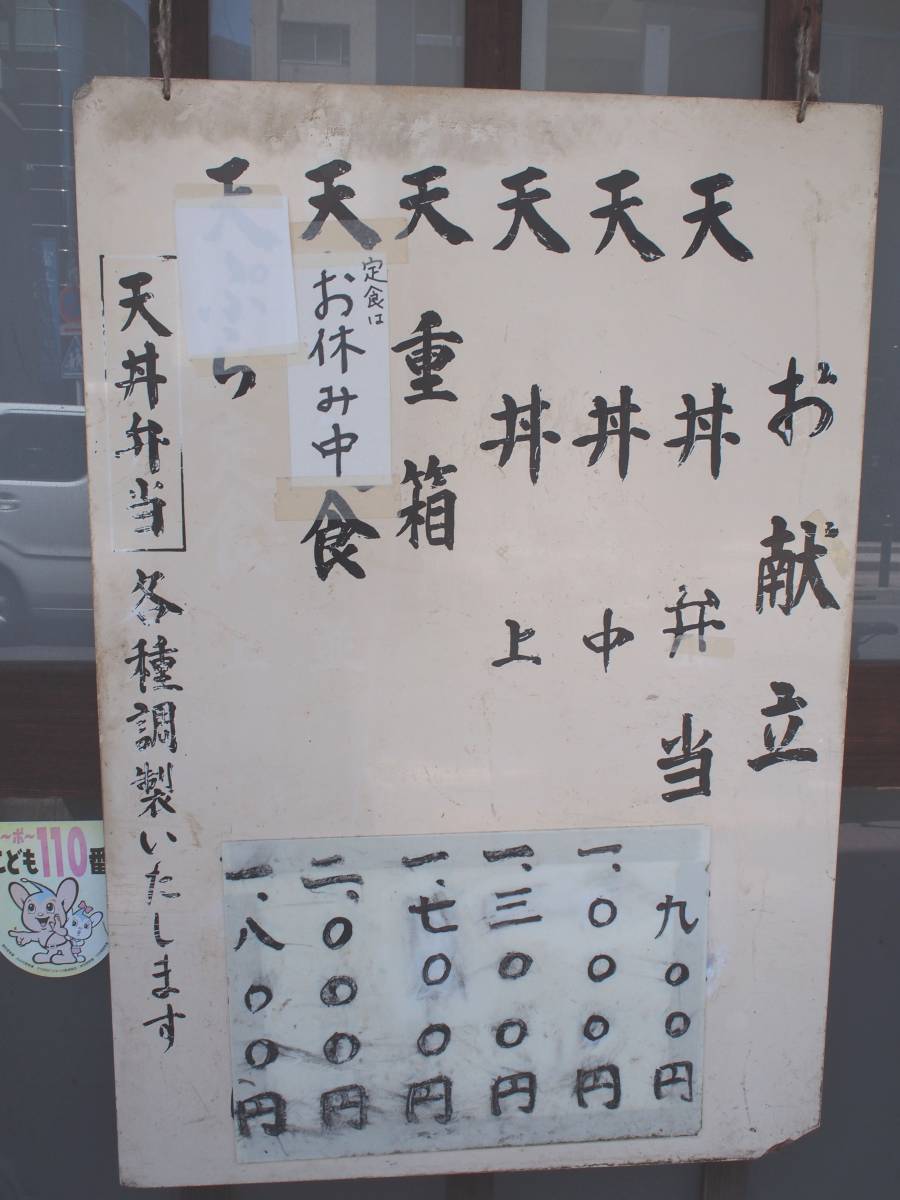 お献立
天丼弁当 九〇〇円
天丼中 一、〇〇〇円
天丼上 一、三〇〇円
天重箱 一、七〇〇円
天 食 二、〇〇〇円
定食は
お休み中
天 ら 一、八〇〇円
天丼弁当 各種調製いたします
〜ポ〜
こども110番